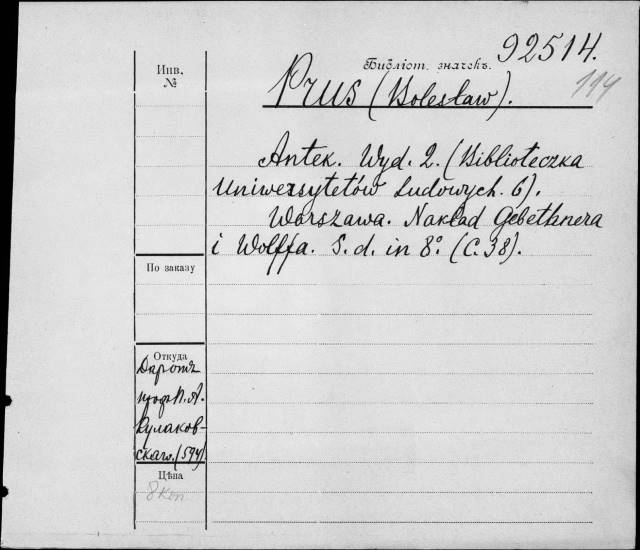 92514.
Библіот. значекъ.
Инв.
№
194
Prus (Bolesław).
Antek. Wyd. 2. (Biblioteczka
Uniwersytetów Ludowych. 6).
Warszawa. Nakład Gebethnera
i Wolffa. S. d. in 8°. (C. 38).
По заказу
Откуда
Даръ отъ
проф. П. А.
Кулаков-
скаго. (594).
Цѣна
8 коп